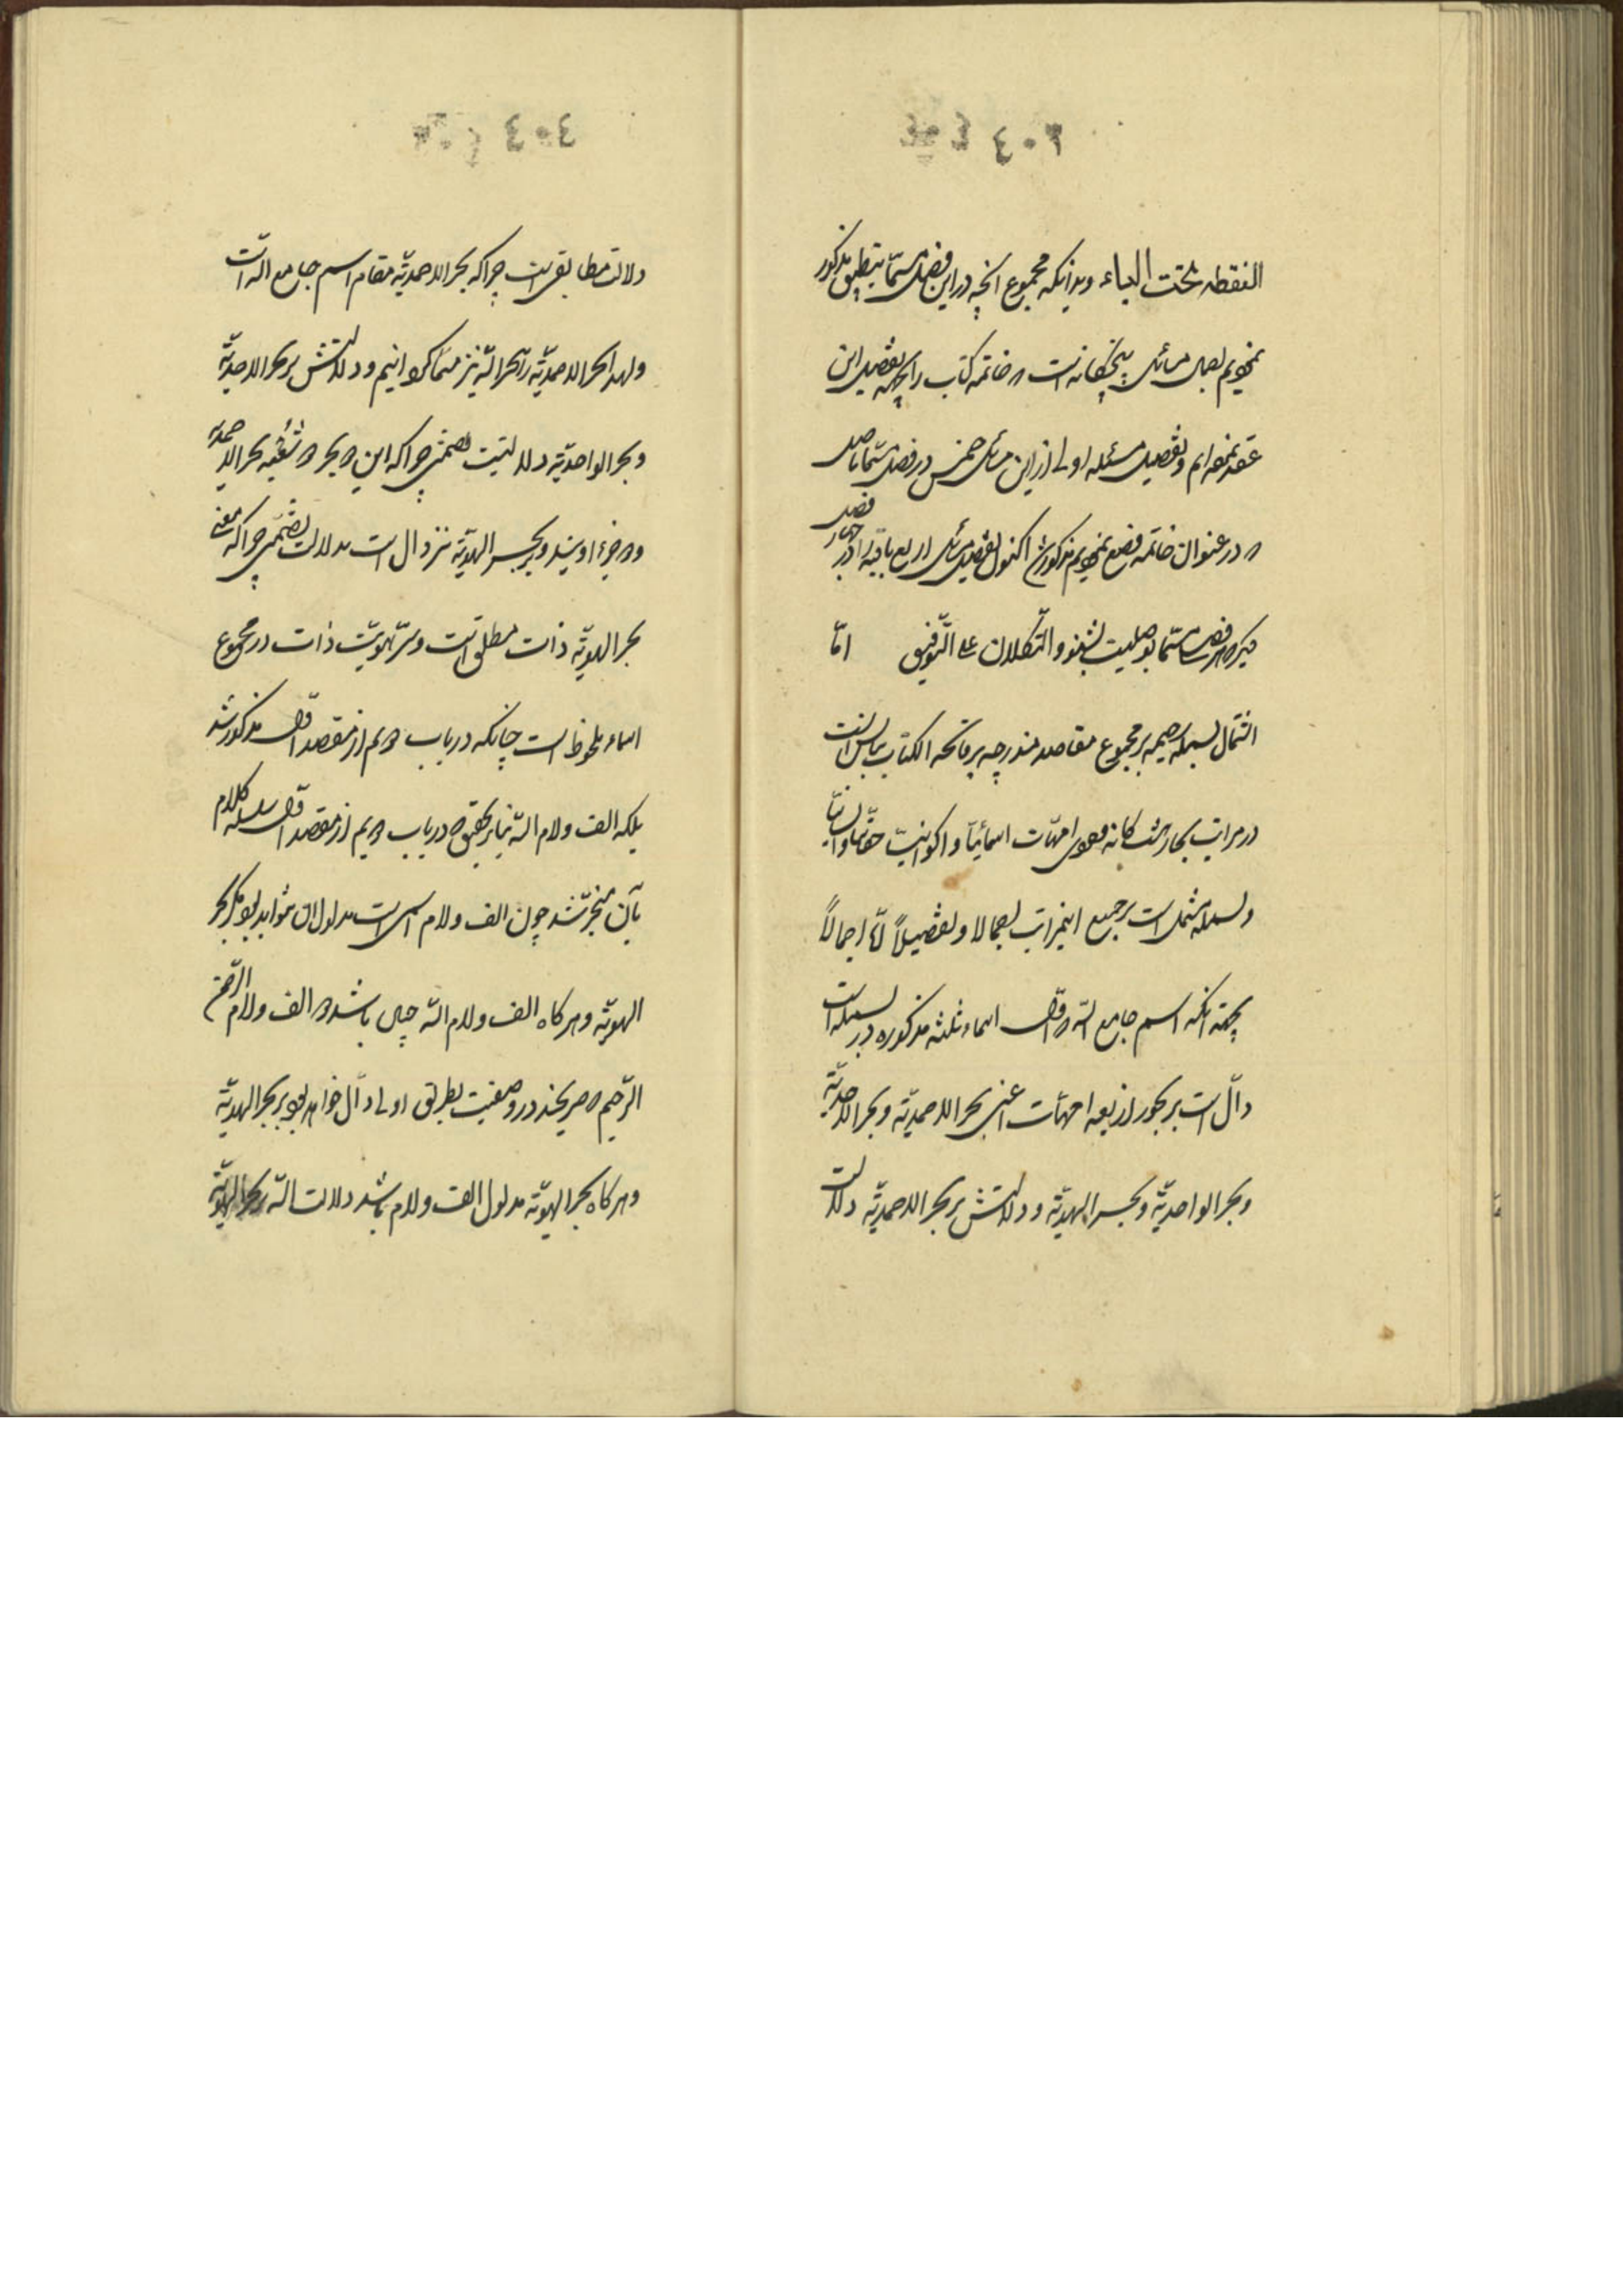 ٤٠٣
النقطه تحت الباء وبدانكه مجموع انچه در این فصل مسمّا بتطبیق مذکور
نمودیم اجمال مسائل پنجگانه است خاتمه کتاب را بجهة تفصیل این
عقد نموده‌ایم وتفصیل مسئله اولی از این مسائل خمس در فصل مسمّا باصل
در عنوان خاتمه وضع نمودیم مذکور شد اکنون تفصیل مسائل اربع باقیه را در چهار فصل
دیگر فصل مسمّا بوصلیت بشنو والتّکلان علی التّوفیق امّا
اشتمال بسمله بر مجموع مقاصد مندرجه بر فاتحه الکتاب
در مراتب بحار امّهات اسمائیّاً واکوانیّت
وبسمله مشتمل است بر جمیع این مراتب اجمالا وتفصیلاً امّا اجمالاً
بجهة آنکه اسم جامع اللّه اوّل اسماء ثلثه مذکوره در بسمله است
دالّ است بر بحور اربعه امّهات اعنی بحر الاحمدیّه وبحر الاحدیّه
وبحر الواحدیّه وبحر الهویّه ودلالتش بر بحر الاحمدیّه دلالت
٤٠٤
دلالت مطابقی است چراکه بحر الاحمدیّه مقام اسم جامع اللّه است
ولهذا بحر الاحمدیّه را بحر اللّه نیز مسمّا کرده‌ایم ودلالتش بر بحر الاحدیّه
وبحر الواحدیّه دلالتیست تضمّنی چراکه این دو بحر دو شعبه بحر الاحمدیّه
ودو جزء اویند وبر بحر الهویّه نیز دال است بدلالت تضمّنی چراکه
بحر الهویّه ذات مطلق است وسرّ هویّت ذات در مجموع
اسماء ملحوظ است چنانکه در باب دویم از مقصد اوّل مذکور شد
بلکه الف ولام اللّه بنابر تحقیق که در باب دویم از مقصد اوّل سلسله کلام
بآن منجرّ شد چون الف ولام اسمی است مدلول آن نخواهد بود مگر بحر
الهویّه وهرگاه الف ولام اللّه چنین باشد الف ولام الرّحمن
الرّحیم در وصفیت بطریق اولی دالّ خواهد بود بر بحر الهویّه
وهرگاه بحر الهویّه مدلول الف ولام باشد دلالت اللّه بر بحر الهویّه